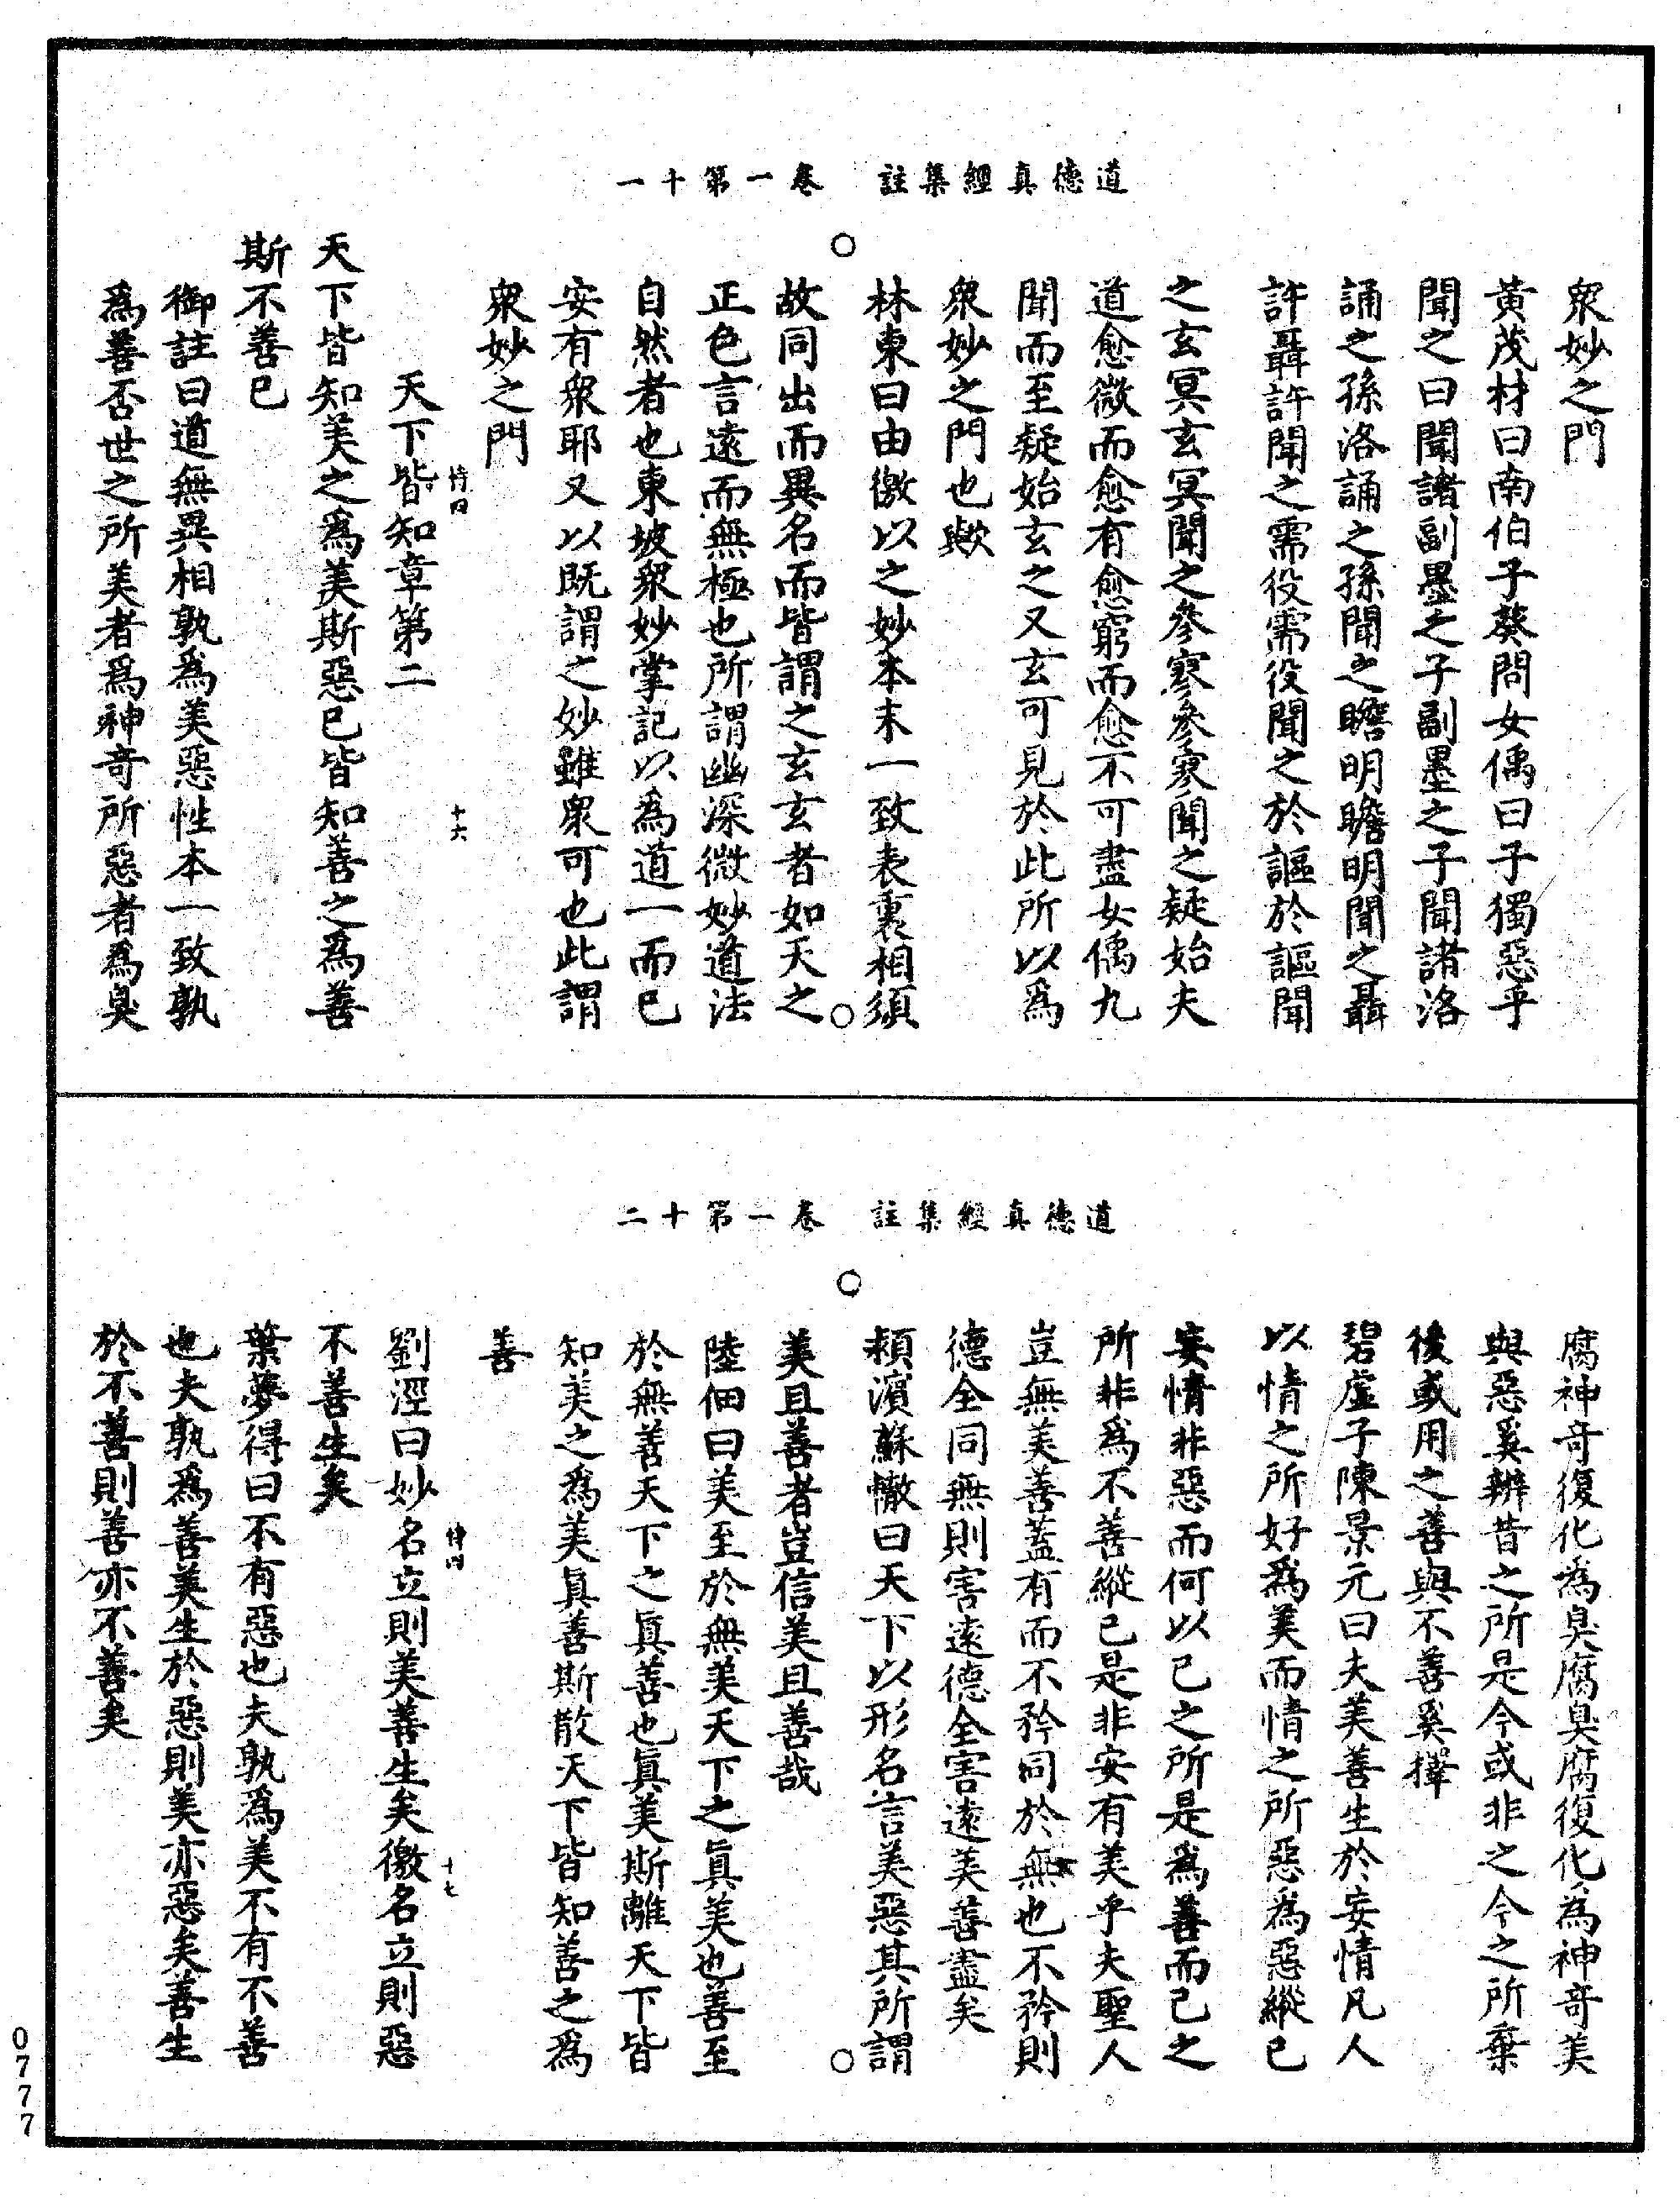 道德真經集註　卷一第十一
衆妙之門
黃茂材曰南伯子葵問女偊曰子獨惡乎
聞之曰聞諸副墨之子副墨之子聞諸洛
誦之孫洛誦之孫聞之瞻明瞻明聞之聶
許聶許聞之需役需役聞之於謳於謳聞
之玄冥玄冥聞之參寥參寥聞之疑始夫
道愈微而愈有愈窮而愈不可盡女偊九
聞而至疑始玄之又玄可見於此所以爲
衆妙之門也歟
林東曰由徼以之妙本末一致表裏相須
故同出而異名而皆謂之玄玄者如天之
正色言遠而無極也所謂幽深微妙道法
自然者也東坡衆妙掌記以爲道一而已
安有衆耶又以既謂之妙雖衆可也此謂
衆妙之門
十六
天下皆知章第二
天下皆知美之爲美斯惡已皆知善之爲善
斯不善已
御註曰道無異相孰爲美惡性本一致孰
爲善否世之所美者爲神奇所惡者爲臭
道德真經集註　卷一第十二
腐神奇復化爲臭腐臭腐復化爲神奇美
與惡奚辨昔之所是今或非之今之所棄
後或用之善與不善奚擇
碧虛子陳景元曰夫美善生於妄情凡人
以情之所好爲美而情之所惡爲惡縱己
妄情非惡而何以己之所是爲善而己之
所非爲不善縱己是非安有美乎夫聖人
豈無美善蓋有而不矜同於無也不矜則
德全同無則害遠德全害遠美善盡矣
頴濱蘇轍曰天下以形名言美惡其所謂
美且善者豈信美且善哉
陸佃曰美至於無美天下之眞美也善至
於無善天下之眞善也眞美斯離天下皆
知美之爲美眞善斯散天下皆知善之爲
善
十七
劉涇曰妙名立則美善生矣徼名立則惡
不善生矣
葉夢得曰不有惡也夫孰爲美不有不善
也夫孰爲善美生於惡則美亦惡矣善生
於不善則善亦不善矣
0777